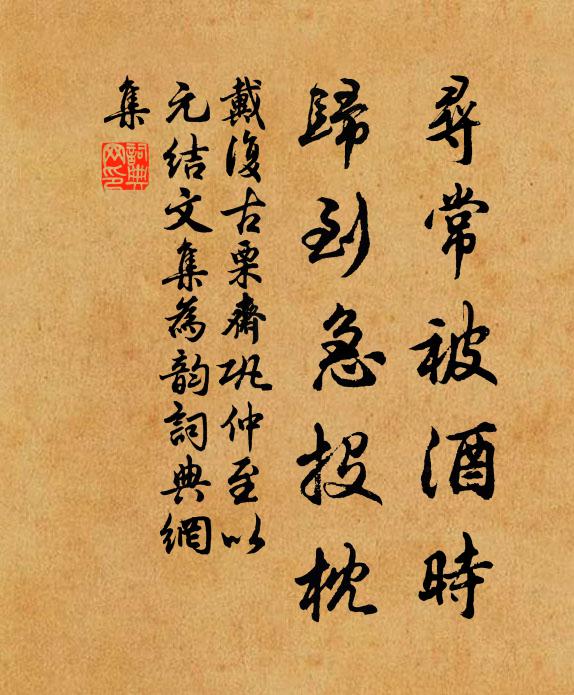 尋常被酒時
歸到急投枕
戴復古栗齋巩仲至以
元結文集為韵詞典網
集
詞典
网印